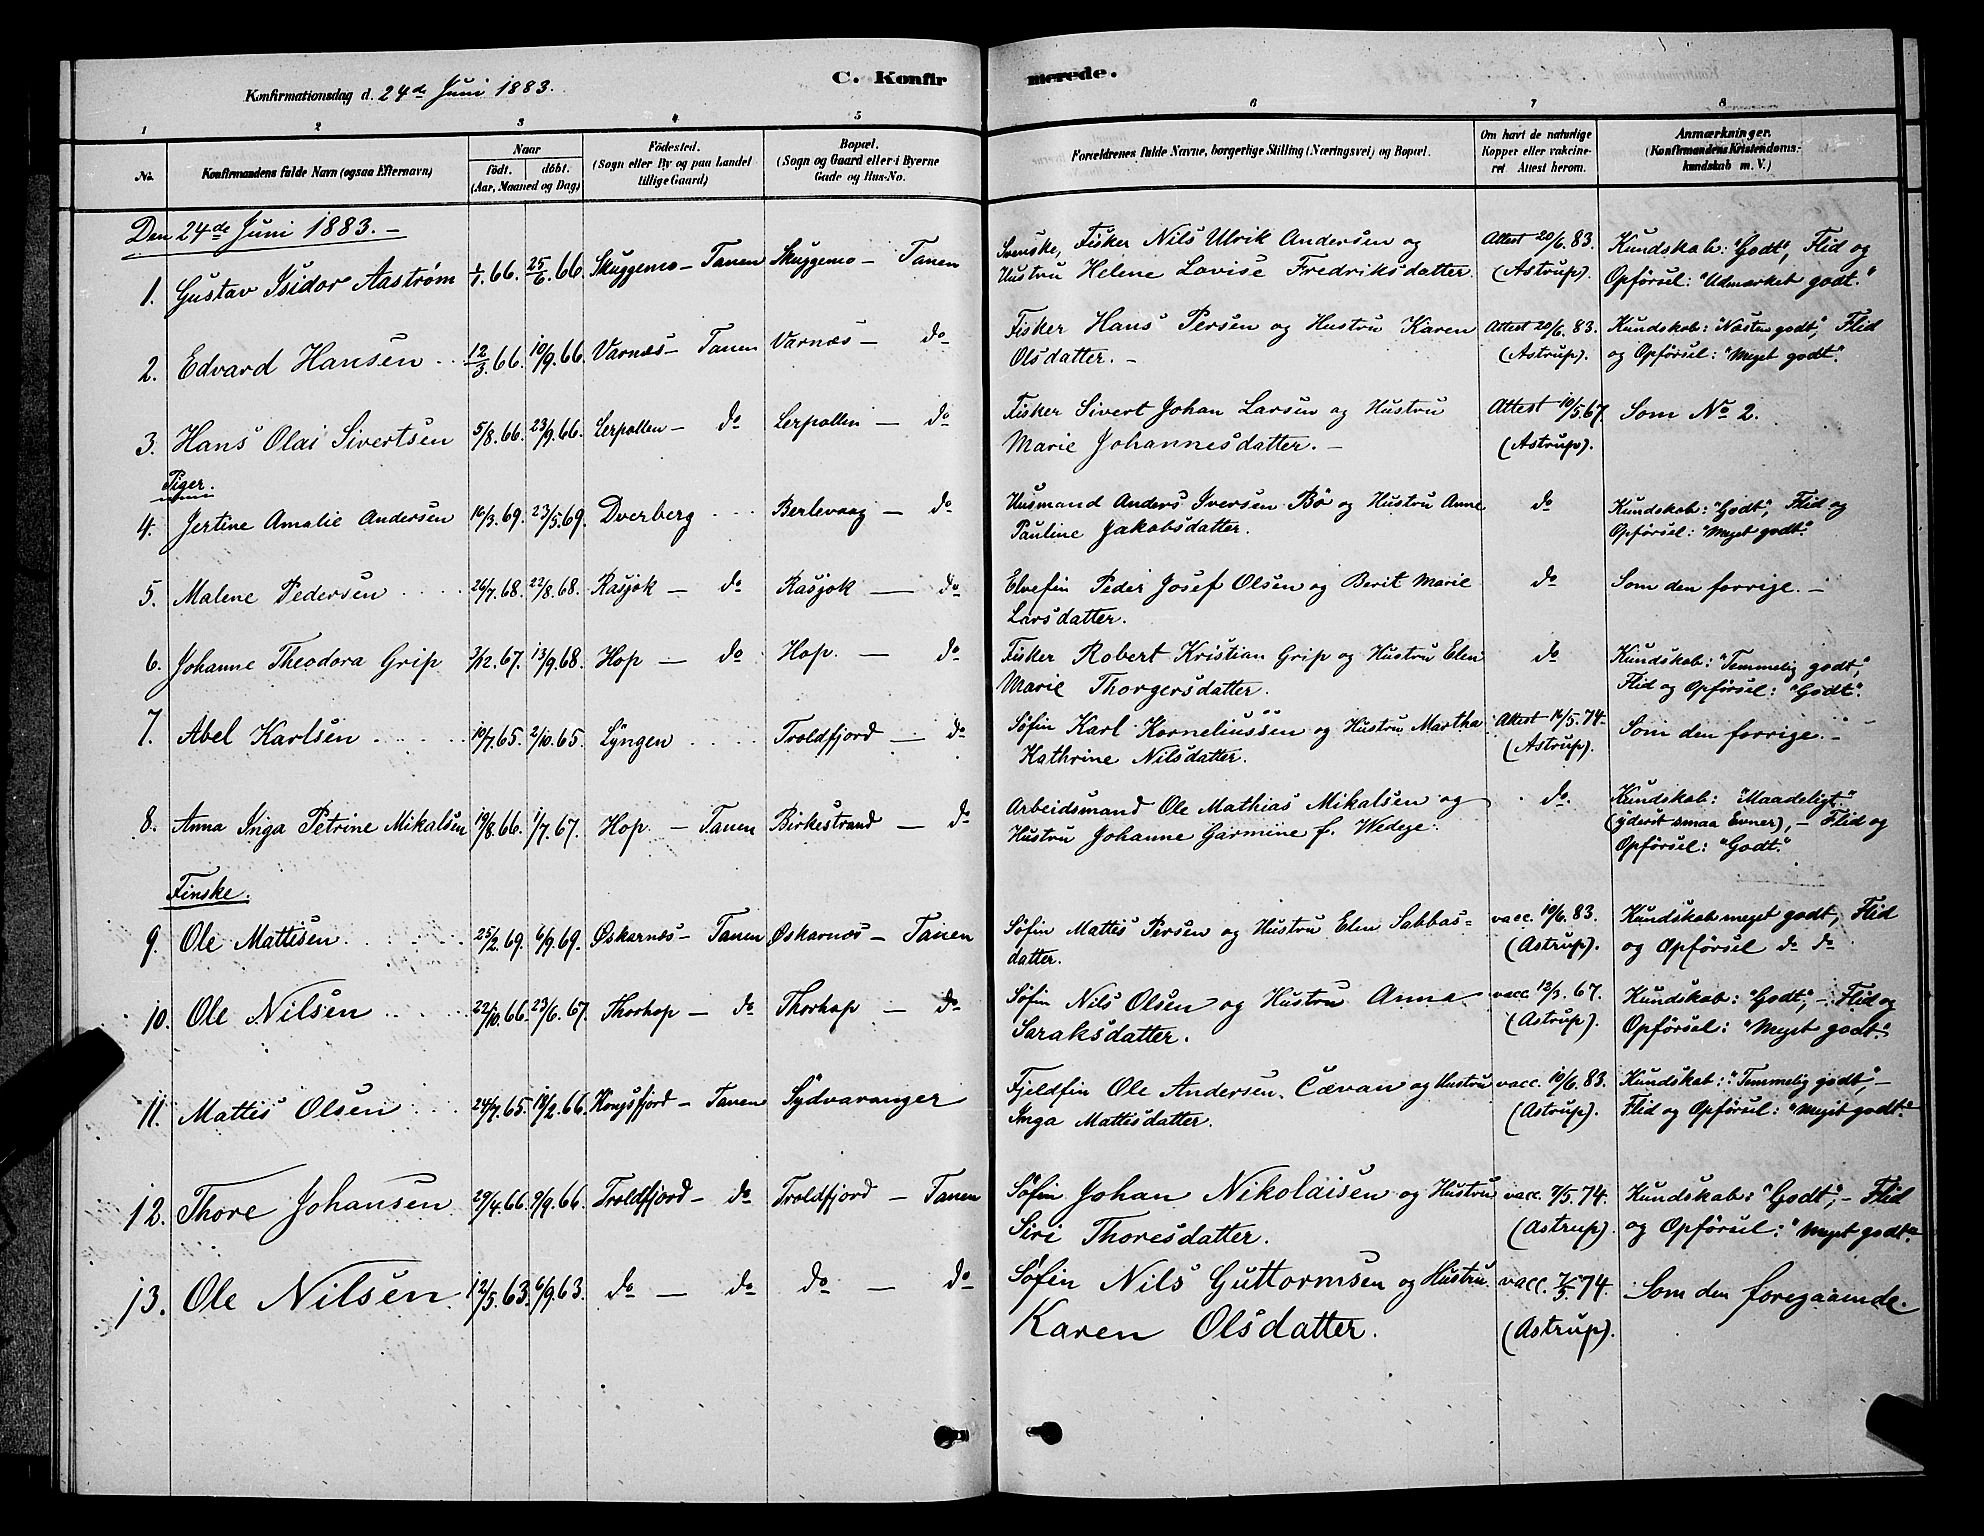 Konfirmationsdag d. 24de Juni 1883.
C. Konfirmerede.
1 2 3 4 5 6 7 8
No.
Konfirmandens fulde Navn (ogsaa Efternavn)
Naar
födt. döbt.
(Aar, Maaned og Dag)
Födested.
(Sogn eller By og paa Landet
tillige Gaard)
Bopæl.
(Sogn og Gaard eller i Byerne
Gade og Hus-No.
Forældrenes fulde Navne, borgerlige Stilling (Næringsvei) og Bopæl.
Om havt de naturlige
Kopper eller vakcine-
ret Attest herom.
Anmærkninger.
(Konfirmandens Kristendoms-
kundskab m. V.)
Den 24de Juni 1883. -
1. Gustav Isidor Aastrøm 1/1.66. 25/6.66. Skuggemo - Tanen Skuggemo - Tanen Svenske, Fisker Nils Ulrik Andersen og Attest 20/6.83. Kundskab: "Godt", Flid og
Hustru Helene Lovise Fredriksdatter. (Astrup). Opførsel: "Udmærket godt."
2. Edvard Hansen .. 12/3.66. 10/9.66. Varnæs - Tanen Varnæs - do Fisker Hans Persen og Hustru Karen Attest 20/6.83. Kundskab: "Næsten godt", Flid
Olsdatter. - (Astrup). og Opførsel: "Meget godt".
3. Hans Olai Sivertsen 5/8.66. 23/9.66. Lerpollen - do Lerpollen - do Fisker Sivert Johan Larsen og Hustru Attest 10/5.67. Som No 2.
Marie Johannesdatter. - (Astrup).
Piger.
4. Jertine Amalie Andersen 16/3.69. 23/5.69. Dverberg ... Berlevaag - do Husmand Anders Iversen Bö og Hustru Anne do Kundskab: "Godt", Flid og
Pauline Jakobsdatter. Opførsel: "Meget godt".
5. Malene Pedersen .... 26/7.68. 22/8.68. Rasjok - do Rasjok - do Elvefin Peder Josef Olsen og Berit Marie do Som den forrige. -
Larsdatter.
6. Johanne Theodora Grip 2/12.67. 13/9.68. Hop - do Hop. - do Fisker Robert Kristian Grip og Hustru Elen do Kundskab: "Temmelig godt",
Marie Thorgersdatter. Flid og Opførsel: "Godt".
7. Abel Karlsen .... 10/7.65. 2/10.65. Lyngen .... Troldfjord - do Søfin Karl Korneliussen og Hustru Martha Attest 14/5.74. Som den forrige. -
Kathrine Nilsdatter. (Astrup).
8. Anna Inga Petrine Mikalsen 19/8.66. 1/7.67. Hop. - Tanen Birkestrand - do Arbeidsmand Ole Mathias Mikalsen og do. Kundskab: "Maadeligt."
Hustru Johanne Garmine f. Wedege. (yderst smaa Evner), - Flid og
Opførsel: "Godt."
Finske.
9. Ole Mattisen. ... 25/2.69. 6/9.69. Øskarnæs - Tanen Øskarnæs - Tanen Søfin Mattis Persen og Hustru Elen Sabbas- vacc. 10/6.83. Kundskab meget godt, Flid
datter. (Astrup). og Opførsel do do
10. Ole Nilsen .... 22/10.66. 23/6.67. Thorhop - do Thorhop - do Søfin Nils Olsen og Hustru Anna vacc. 13/3.67. Kundskab: "Godt", - Flid og
Saraksdatter. (Astrup). Opførsel: "Meget godt."
11. Mattis Olsen ... 24/7.65. 18/2.66. Kongsfjord - Tanen Sydvaranger Fjeldfin Ole Andersen Cævan og Hustru vacc. 10/6.83. Kundskab: "Temmelig godt", -
Inga Mattisdatter. (Astrup). Flid og Opførsel: "Meget godt."
12. Thore Johansen 29/4.66. 9/9.66. Troldfjord - do Troldfjord - Tanen Søfin Johan Nikolaisen og Hustru vacc. 7/5.74. Kundskab: "Godt", - Flid
Siri Thoresdatter. (Astrup). og Opførsel: "Meget godt."
13. Ole Nilsen. 12/5.63. 6/9.63. do - do do - do Søfin Nils Guttormsen og Hustru vacc. 7/5.74. Som den foregaaende.
Karen Olsdatter. (Astrup).